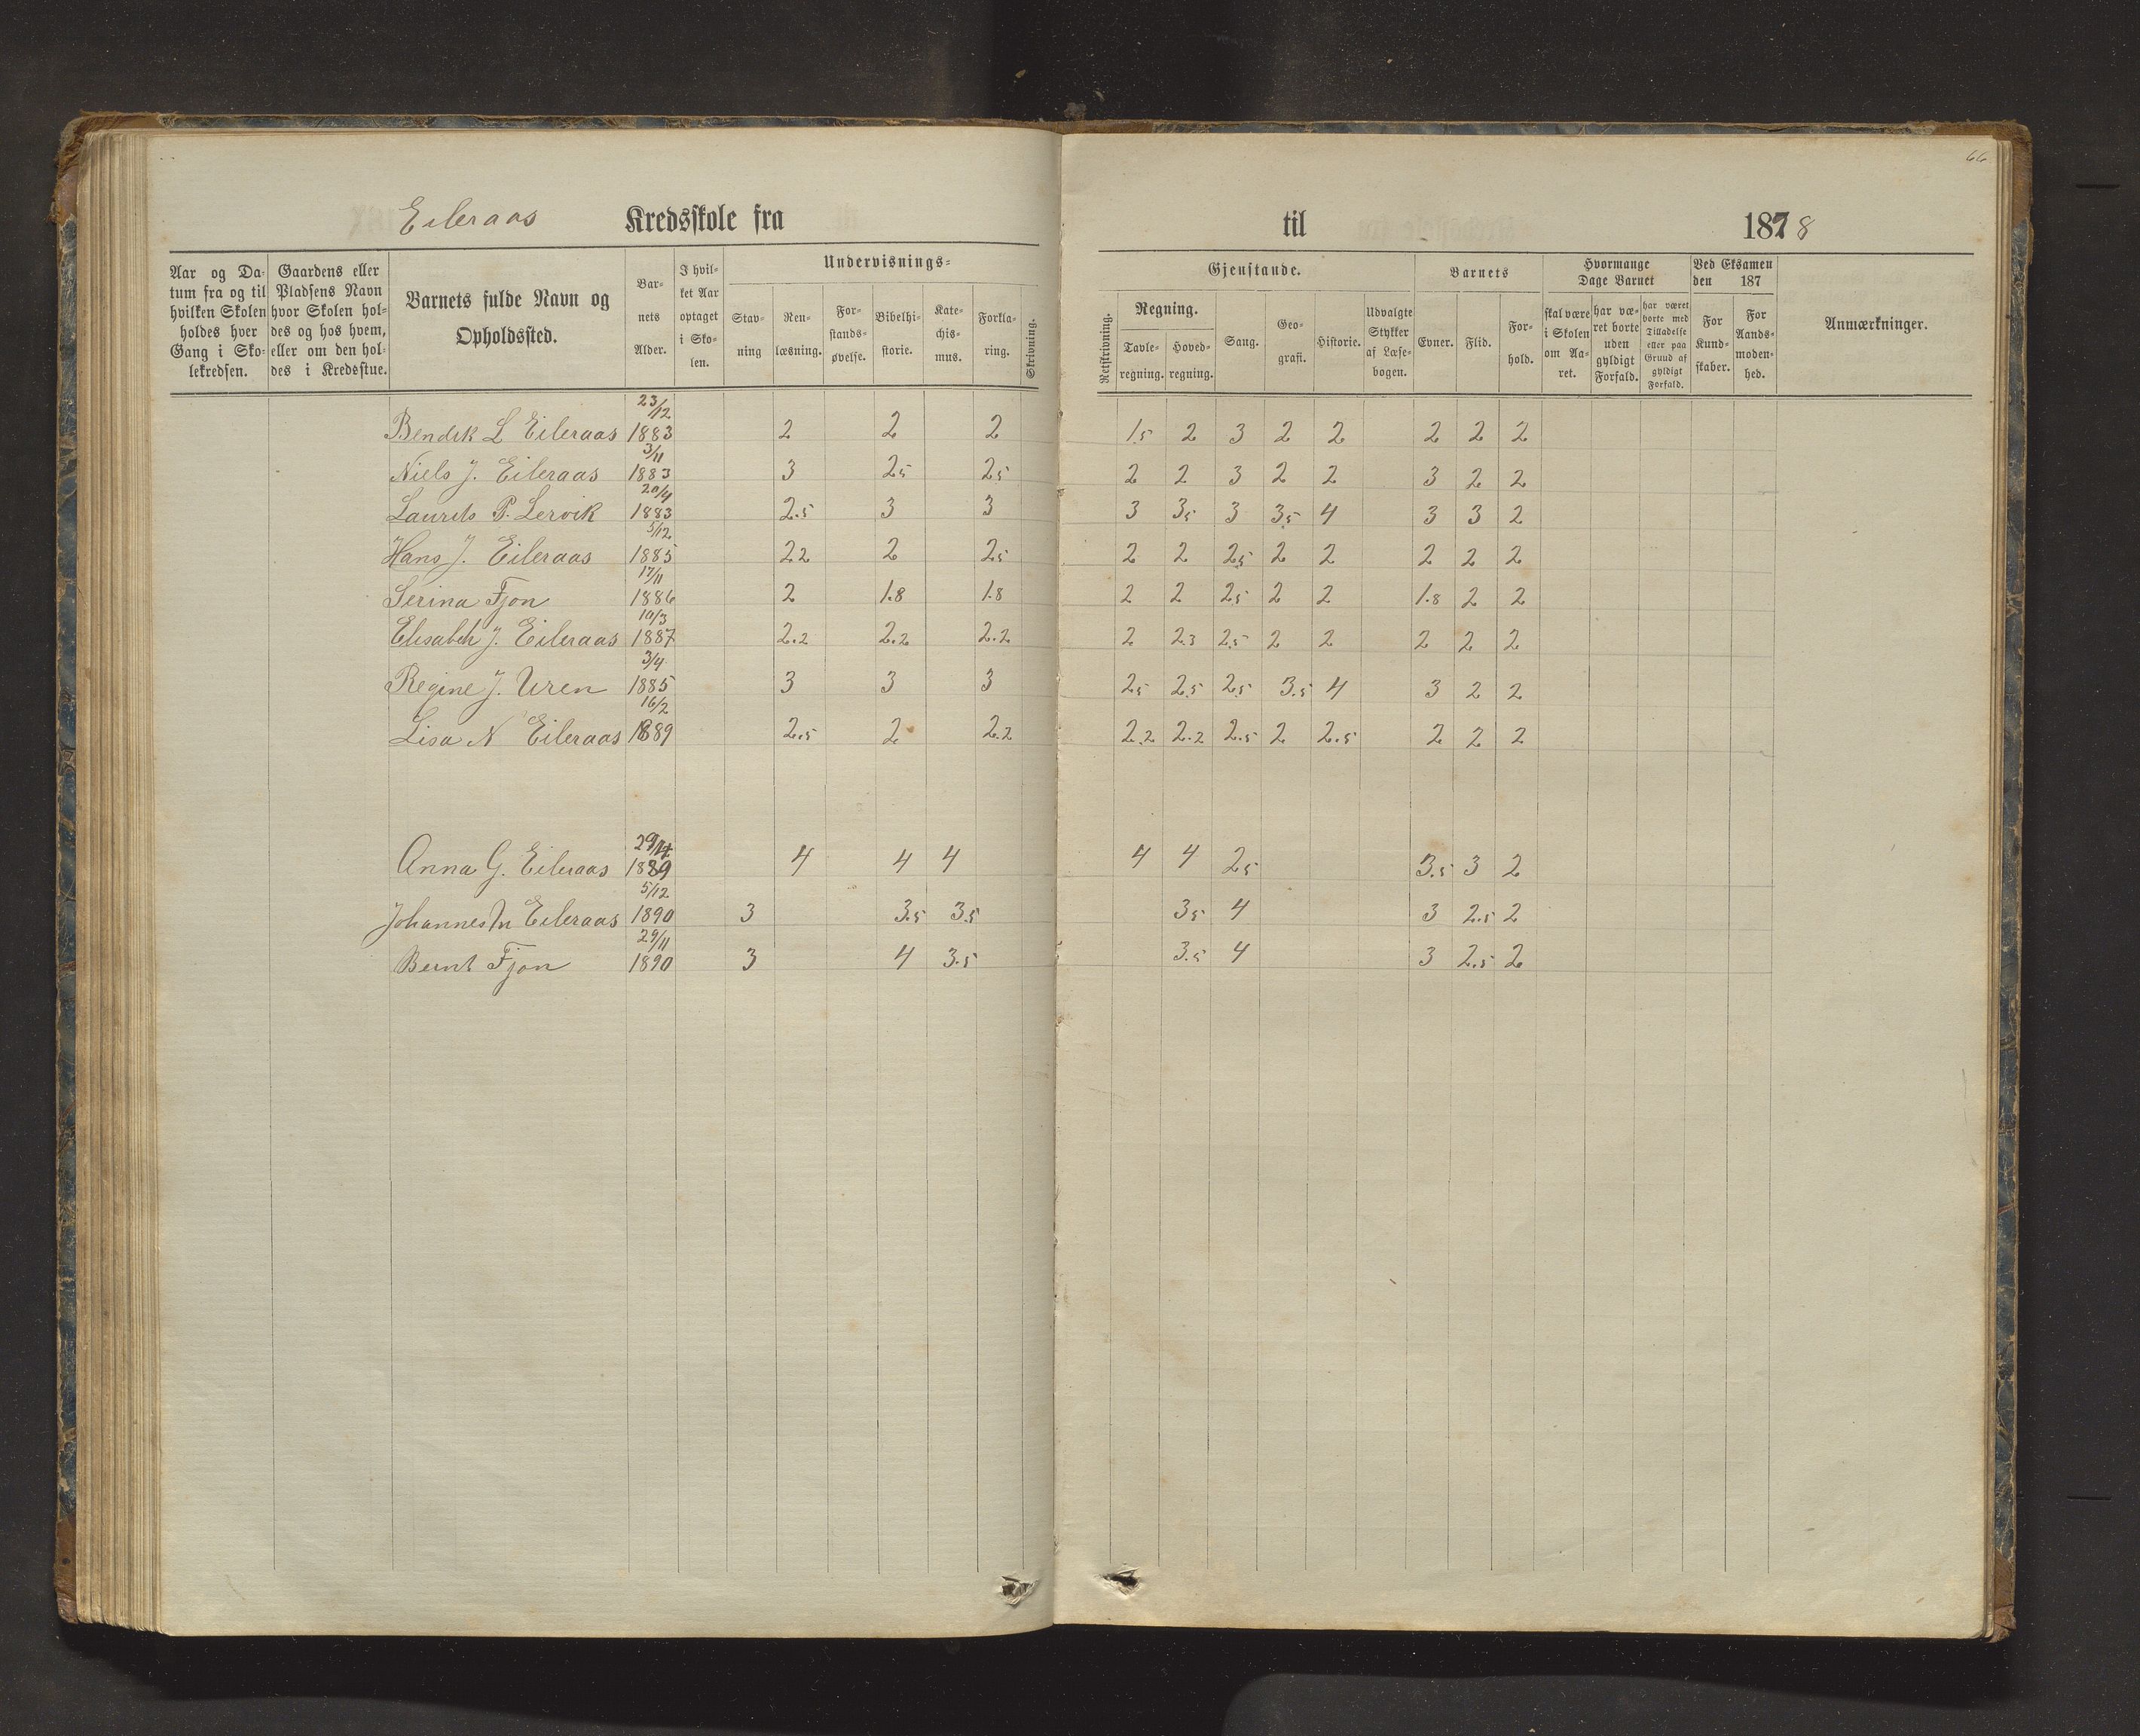 66
Eileraas Kredsskole fra til 1878
Aar og Da- tum fra og til hvilken Skolen holdes hver Gang i Sko- lekredsen.
Gaardens eller Pladsens Navn hvor Skolen hol- des og hos hvem, eller om den hol- des i Kredsstue.
Barnets fulde Navn og Opholdssted.
Bar- nets Alder.
I hvil- ket Aar optaget i Sko- len.
Undervisnings-
Stav- ning
Ren- læsning.
For- stands- øvelse.
Bibelhi- storie.
Kate- chis- mus.
Forkla- ring.
Skrivning.
Gjenstande.
Retskrivning.
Regning.
Tavle- regning.
Hoved- regning.
Sang.
Geo- grafi.
Historie.
Udvalgte Stykker af Læse- bogen.
Barnets
Evner.
Flid.
For- hold.
Hvormange Dage Barnet
skal være i Skolen om Aa- ret.
har væ- ret borte uden gyldigt Forfald.
har været borte med Tilladelse eller paa Grund af gyldigt Forfald.
Ved Eksamen den 187
For Kund- skaber.
For Aands- moden- hed.
Anmærkninger.
23/12
Bendik L Eileraas 1883 2 2 2 1.5 2 3 2 2 2 2 2
3/11
Niels J. Eileraas 1883 3 2.5 2.5 2 2 3 2 2 3 2 2
20/4
Laurits P. Lervik 1883 2.5 3 3 3 3.5 3 3.5 4 3 3 2
5/12
Hans J. Eileraas 1885 2.2 2 2.5 2 2 2.5 2 2 2 2 2
17/11
Serina Fjon 1886 2 1.8 1.8 2 2 2.5 2 2 1.8 2 2
10/3
Elisabeh J. Eileraas 1887 2.2 2.2 2.2 2 2.3 2.5 2 2 2 2 2
3/4
Regine J. Uren 1885 3 3 3 2.5 2.5 2.5 3.5 4 3 2 2
16/2
Lisa N Eileraas 1889 2.5 2 2.2 2.2 2.2 2.5 2 2.5 2 2 2
Anna G. Eileraas 1889 4 4 4 4 4 2.5 3.5 3 2
5/12
Johannes Eileraas 1890 3 3.5 3.5 3.5 4 3 2.5 2
29/11
Bernt Fjon 1890 3 4 3.5 3.5 4 3 2.5 2